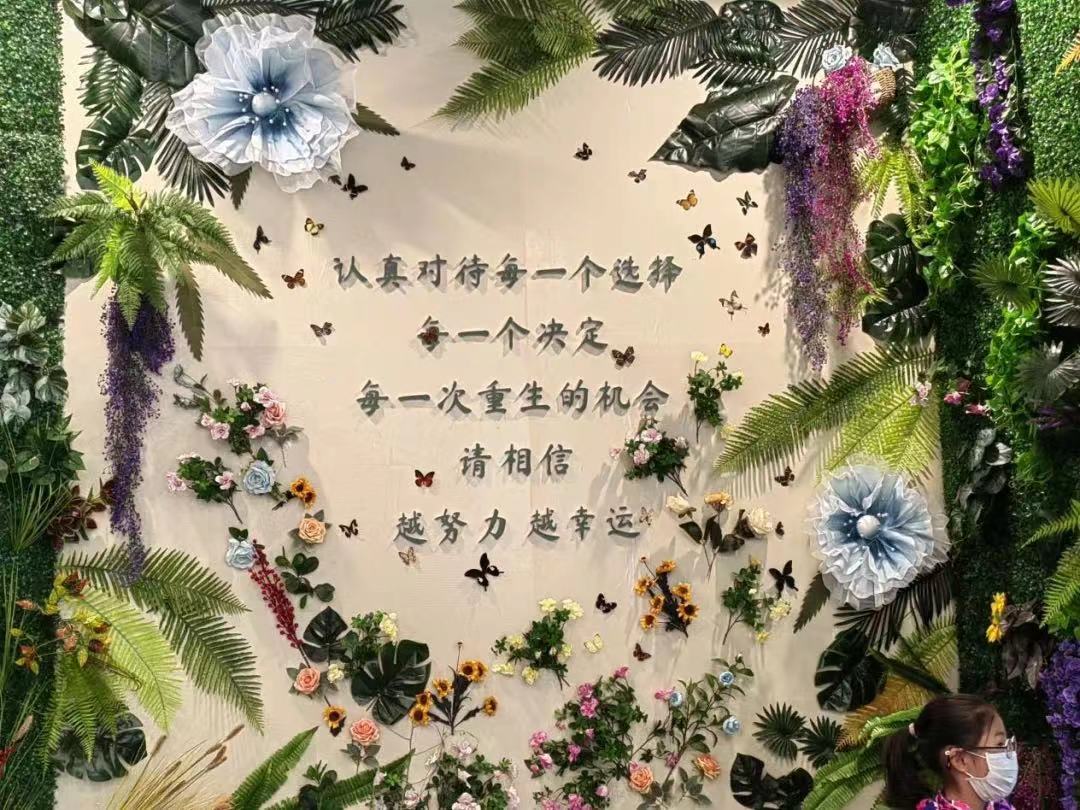 认真对待每一个选择
每一个决定
每一次重生的机会
请相信
越努力 越幸运